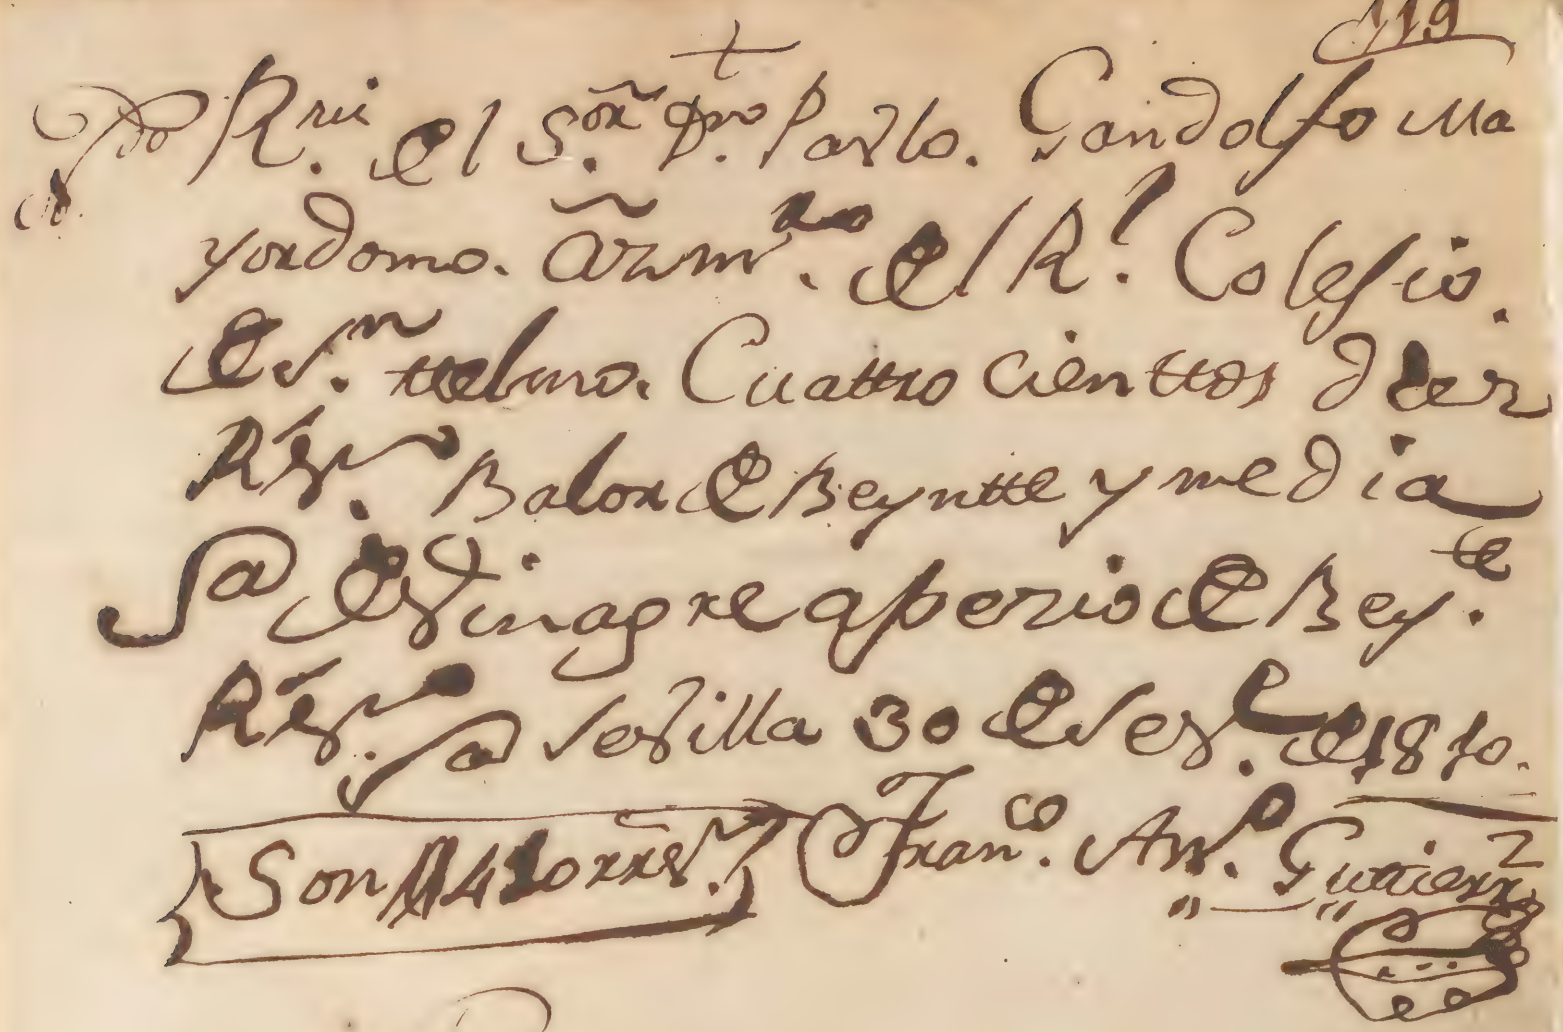 119
†
Rvi. el S.or D.n Pablo. Gandolfo Ma
yordomo. Adm.or del Rl. Colegio.
de S.n ttelmo. Cuattro cienttos diez
Rs.vn Balor de Beyntte y media
@ de Vinagre a prezio de Bey.te
Rs.vn @ Sevilla 30 de Sep.e de 1810.
Son 410 rrs.vn Fran.co Ant.o Guttierrz